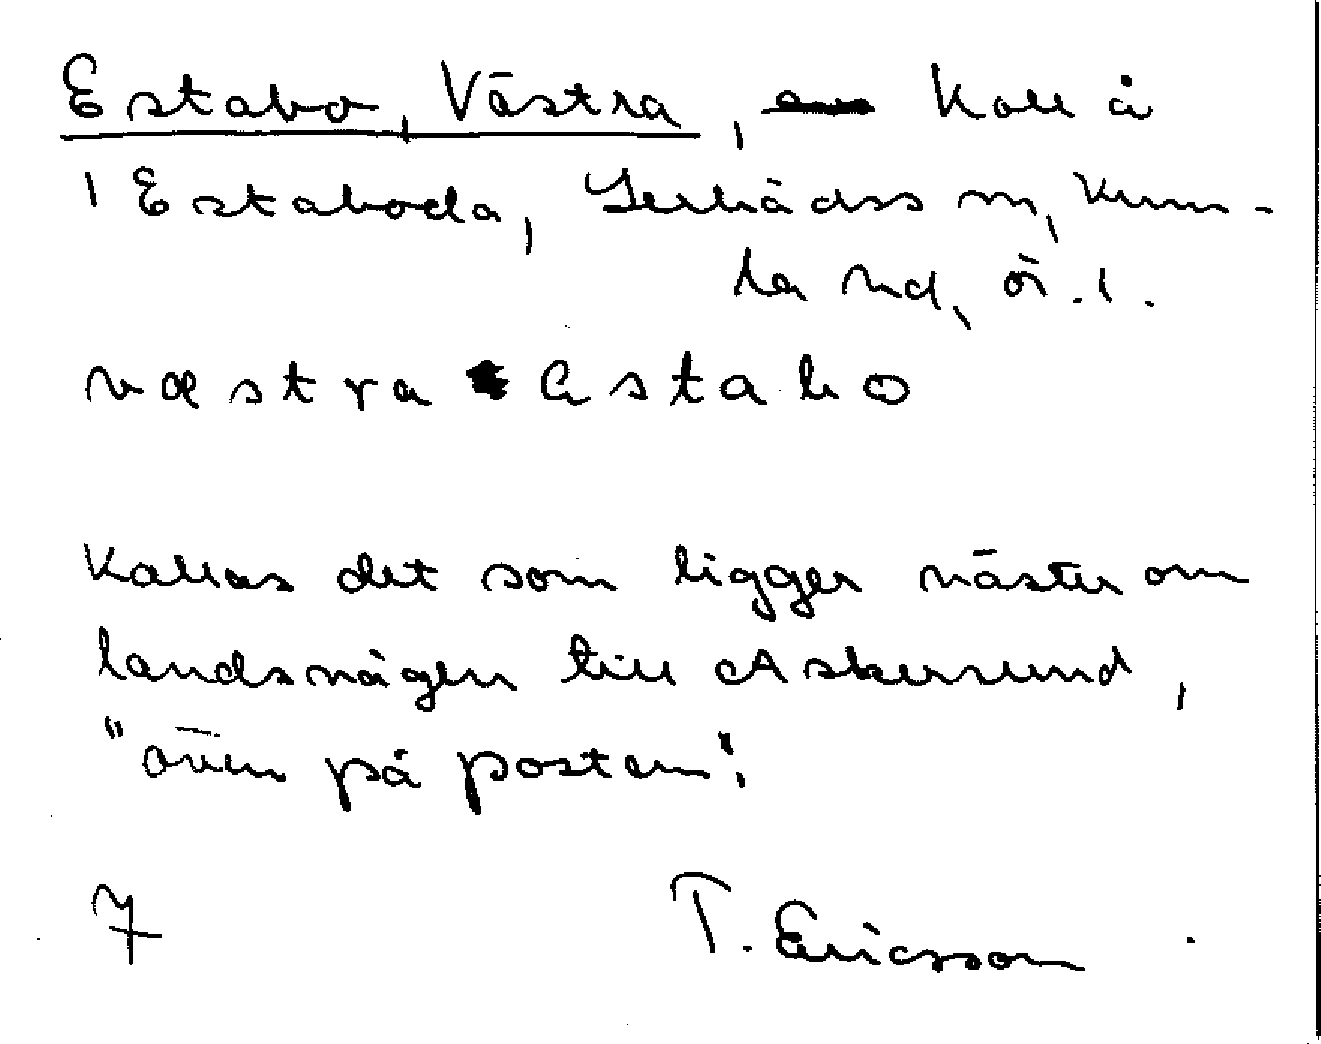 Estabo, Västra, koll å
i Estaboda, Lerbäcks sn, Kum-
la hd, ör.l.
væstra estabo
Kallas det som ligger väster om
landsvägen till Askersund,
"även på posten".
7 T. Ericsson